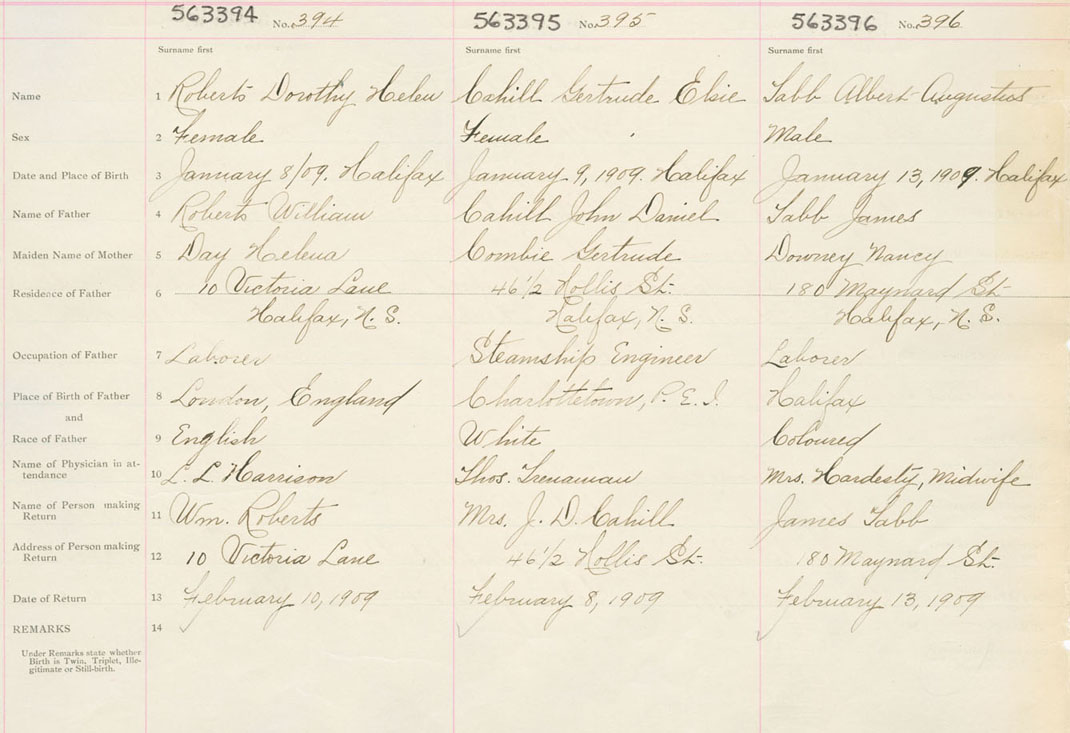 563394 No. 394 563395 No. 395 563396 No. 396
Surname first Surname first Surname first
Name 1 Roberts Dorothy Helen Cahill Gertrude Elsie Tabb Albert Augustus
Sex 2 Female Female Male
Date and Place of Birth 3 January 8/09. Halifax January 9, 1909. Halifax January 13, 1909. Halifax
Name of Father 4 Roberts William Cahill John Daniel Tabb James
Maiden Name of Mother 5 Day Helena Combie Gertrude Downey Nancy
Residence of Father 6 10 Victoria Lane 46 1/2 Hollis St. 180 Maynard St.
Halifax, N.S. Halifax, N.S. Halifax, N.S.
Occupation of Father 7 Laborer Steamship Engineer Laborer
Place of Birth of Father 8 London, England Charlottetown, P.E.I. Halifax
and
Race of Father 9 English White Coloured
Name of Physician in at-
tendance 10 L. L Harrison Thos. Trenaman Mrs. Hardesty, Midwife
Name of Person making
Return 11 Wm. Roberts Mrs. J. D. Cahill James Tabb
Address of Person making
Return 12 10 Victoria Lane 46 1/2 Hollis St. 180 Maynard St.
Date of Return 13 February 10, 1909 February 8, 1909 February 13, 1909
REMARKS 14
Under Remarks state whether
Birth is Twin, Triplet, Ille-
gitimate or Still-birth.